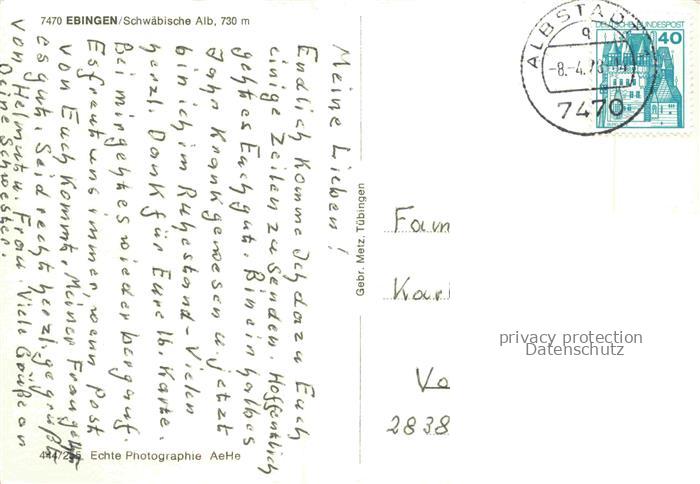 7470 EBINGEN/Schwäbische Alb, 730 m
Meine Lieben!
Endlich komme Ich dazu Euch
einige Zeilen zu senden. Hoffentlich
geht es Euch gut. Bin ein halbes
Jahr Krank gewesen u. jetzt
bin ich im Ruhestand - Vielen
herzl. Dank für Eure lb. Karte.
Bei mir geht es wieder bergauf.
Es freut uns immer, wenn Post
von Euch kommt. Meiner Frau geht
es gut. Seid recht herzl. gegrüßt
von Helmut u. Frau. Viele Grüße an
Deine Schwester.
Echte Photographie AeHe
Gebr. Metz, Tübingen
ALBSTADT
a
-8.-4.78
7470
DEUTSCHE BUNDESPOST
40
Fam
Karl
Vo
2838
privacy protection
Datenschutz